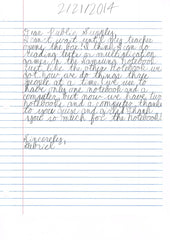 2/21/2014
Dear Public Supplier,
I can't wait until my teacher
opens the box. I think I can do
reading lists or multiplication
games in the amazing notebook
just like the other notebook we
got now we do things three
people at a time. We use to
have only one notebook and a
computer, but now we have two
notebooks and a computer, thanks
to your cause and a big thank
you so much for the notebook!
Sincerely,
Gabriel